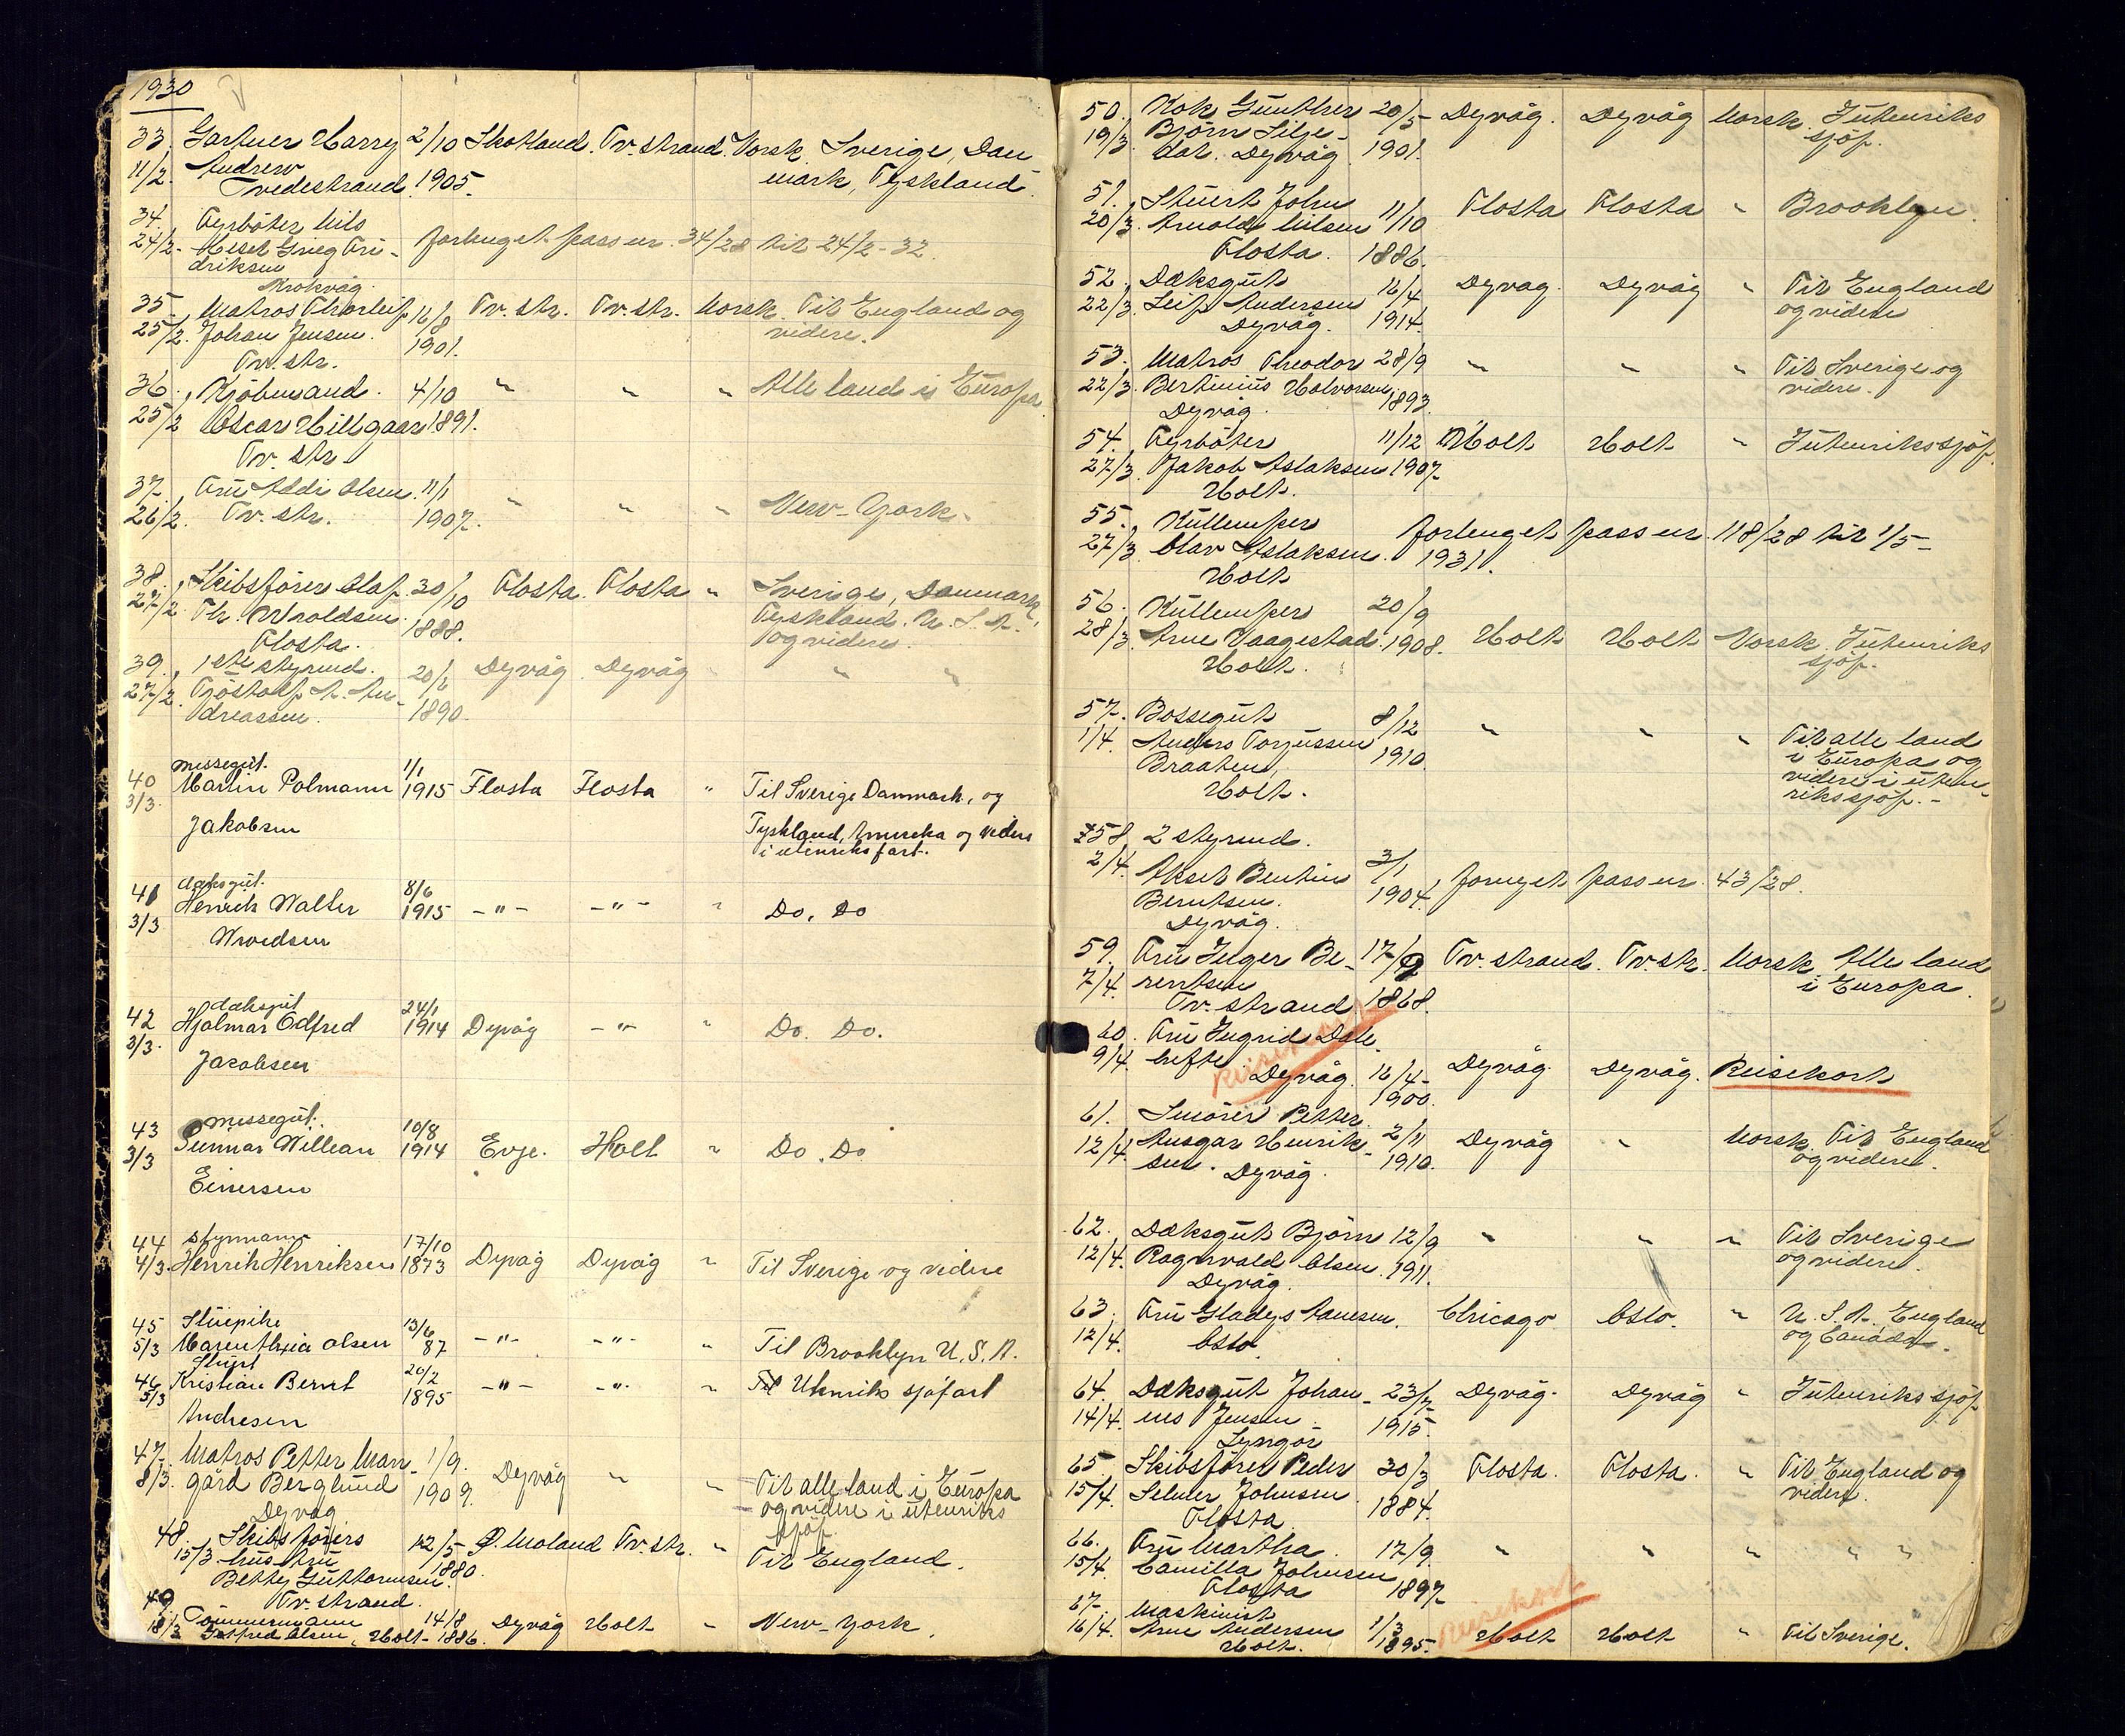 1930
33. Gartner Harry 2/10 Skotland. Tv.strand. Norsk. Sverige, Dan
11/2. Andrew
Tvedestrand. 1905. mark, Tyskland
34. Fyrböter Nils
24/2. Aksel Grieg Fri- forlenget pass nr. 34/28 til 24/2-32.
driksen
Krokvåg.
35. Matros Thorleif 16/8 Tv. str. Tv. str. Norsk. Til England og
25/2. Johan Jensen. 1901. videre.
Tv. str.
36. Kjöbmand. 4/10 " " " Alle land i Europa
25/2 Oscar Hillgaar 1891.
Tv. str
37. Fru Addi Olsen. 11/1 " " " New-York.
26/2. Tv. str. 1907.
38. Skibsförer Olaf 30/10 Flosta. Flosta " Sverige, Danmark,
27/2 Th. Wroldsen. 1888. Tyskland. U. S. A.
Flosta. og videre.
39. 1ste styrmd. 20/6 Dyvåg Dyvåg " " "
27/2. Tjöstolf A. An-
dreassen. 1890.
messegut.
40 Martin Polmann 1/1 1915 Flosta Flosta " Til Sverige Danmark, og
3/3. Jakobsen Tyskland, Amerika og videre
i utenriksfart.
daksgut.
41 Henrik Walter 8/6 1915 -"- -"- " Do. Do
3/3 Wroldsen
daksgut
42 Hjalmar Edfred 24/1 1914 Dyvåg -"- " Do. Do.
3/3. Jacobsen
messegut.
43 Gunnar Willean 10/8 1914 Evje. Holt " Do. Do
3/3 Einersen
44 styrmann 17/10
4/3. Henrik Henriksen 1873 Dyvåg Dyvåg " Til Sverige og videre
45 Stuepike 13/6
5/3 Maren Olsen 87 -"- -"- " Til Brooklyn U. S. A.
Stuert
46 Kristian Bernt 20/2 1895 -"- -"- " Til Utenriks sjöfart
5/3 Andresen
47. Matros Petter Mar- 1/9.
8/3. gård Berglund 1909. Dyvåg " " Til alle land i Europa
Dyvåg og videre i utenriks
sjöf.
48. Skibsförers 12/5 Ø. Moland Tv. str. " Til England.
15/3 hustru 1880.
Betty Guttormsen.
Tv. strand.
49. Tömmermann 14/8 Dyvåg Holt " New-York.
18/3 Olsen, Holt- 1886.
50. Kok Günther 20/5 Dyvåg. Dyvåg Norsk. Jutenriks
19/3 Björn Lilje- sjöf.
dal. Dyvåg 1901.
51. Stuert John
20/3. Arnold Nilsen 11/10 Flosta Flosta " Brooklyn.
Flosta. 1886.
52. Dæksgut 16/4 Dyvåg. Dyvåg " Til England
22/3. Leif Andersen og videre
Dyvåg. 1914.
53. Matros Theodor 28/9 " " " Til Sverige og
22/3. Bertinius Halvorsen 1893. videre.
Dyvåg.
54. Fyrböter 11/12 Holt Holt " Jutenrikssjöf.
27/3. Jakob Aslaksen 1907.
Holt.
55. Kullemper forlenget pass nr. 118/28 til 1/5-
27/3 Olav Aslaksen. 1931.
Holt
56. Kullemper 20/9
28/3. Arne Vaagestad. 1908. Holt Holt Norsk. Jutenriks
Holt. sjöf.
57. Bossegut 8/12 " " " Til alle land
1/4. Anders Torjussen 1910. i Europa og
Braaten, videre i uten-
Holt. rikssjöf.-
58. 2 styrmd.
2/4. Aksel Bentin 3/1 1904. fornyet pass nr. 43/28.
Berntsen.
Dyvåg.
59. Fru Inger Be- 17/9 Tv. strand. Tv.str. Norsk. Alle land
7/4. rentsen i Europa.
Tv. strand 1868.
60. Fru Ingrid Dale
9/4. Dyvåg. 16/4- 1900. Dyvåg Dyvåg. Reisekort
Reisekort
61. Smörer Petter
12/4. Ansgar Henrik- 2/11 Dyvåg " Norsk. Til England
sen. Dyvåg. 1910. og videre.
62. Dæksgut Björn 12/9 " " " Til Sverige
12/4. Ragnvald Olsen. 1911. og videre.
Dyvåg.
63. Fru Gladys Aanesen. Chicago Oslo. " U. S. A., England
12/4. Oslo. og Canada.
64. Dæksgut Johan- 23/7 Dyvåg. Dyvåg " Jutenrikssjöf
14/4. nes Jensen 1915.
Lyngör
65. Skibsförer Peder 30/3 Flosta. Flosta. " Til England og
15/4. Selmer Johnsen 1884. videre.
Flosta.
66. Fru Martha 17/9. " " " " "
15/4. Camilla Johnsen 1897.
Flosta
67. Maskinist
16/4. Arne Andersen 1/3 1895. Holt Holt " Til Sverige.
Holt.
Reisekort